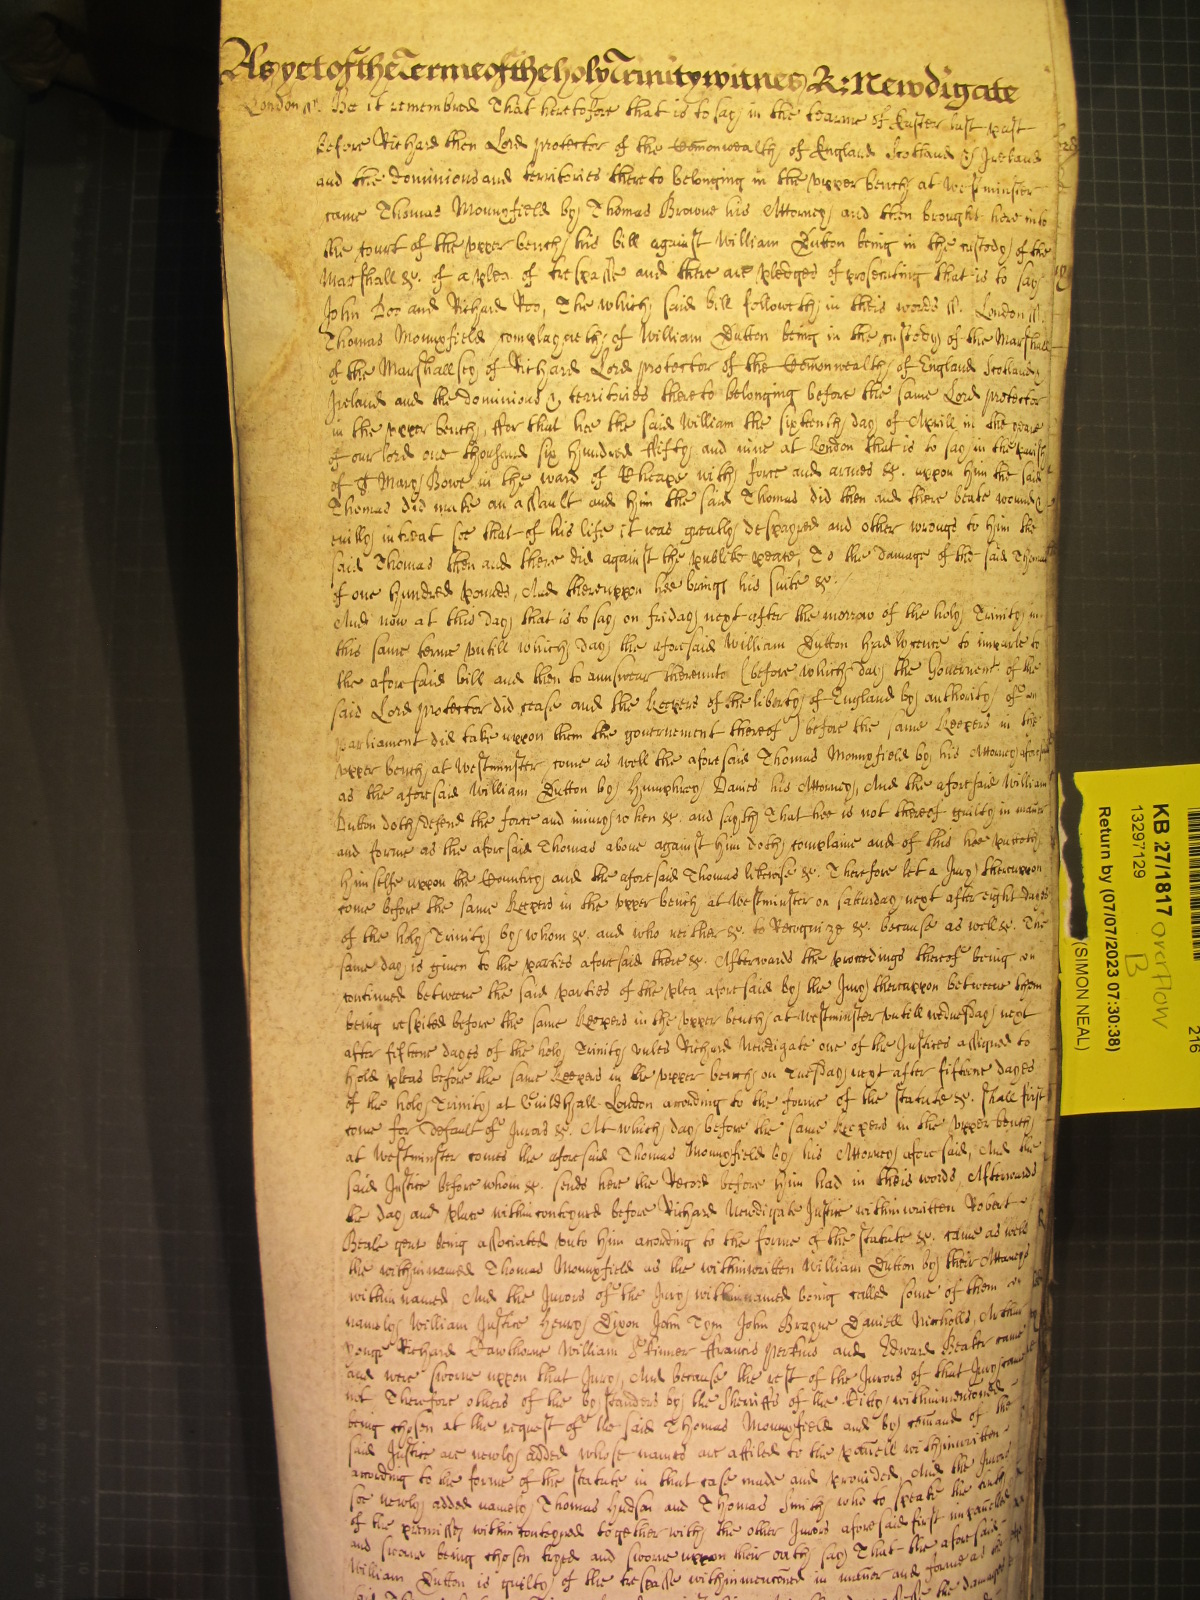 As yet of the Terme of the holy Trinity witnes R: Newdigate
London ss. Be it remembred That heretofore that is to say in the tearme of Easter last past
before Richard then Lord protector of the Com̄onwealth of England Scotland & Ireland
and the dominions and territories thereto belonging in the upper bench at Westminster
came Thomas Mounfield by Thomas Browne his Attorney and then brought here into
the Court of the upper bench his bill against William Dutton being in the custody of the
Marshall &c. of a plea of trespasse and there are pledges of prosecuting that is to say
John Doo and Richard Roo, The which said bill followeth in theis words ss. London ss.
Thomas Mounfield complayneth of William Dutton being in the custody of the Marshall
of the Marshallsey of Richard Lord protector of the Com̄onwealth of England Scotland &
Ireland and the dominions & territories thereto belonging before the same Lord protector
in the upper bench, ffor that hee the said William the sixtenth day of Aprill in the yeare
of our lord one thousand six hundred ffifty and nine at London that is to say in the parish
of St Mary Bowe in the ward of Cheape with force and armes &c. uppon him the said
Thomas did make an assault and him the said Thomas did then and there beate wound &
evilly intreat soe that of his life it was greatly despayred and other wrongs to him the
said Thomas then and there did against the publike peace, To the damage of the said Thomas
of one hundred pounds, And thereuppon hee brings his suite &c.
And now at this day that is to say on friday next after the morrow of the holy Trinity in
this same terme untill which day the aforesaid William Dutton had lycence to imparle to
the aforesaid bill and then to aunswear thereunto (before which day the Governemt. of the
said Lord protector did cease and the Keepers of the liberty of England by authority of
Parliament did take uppon them the governement thereof) before the same Keepers in the
upper bench at Westminster come as well the aforesaid Thomas Mounfield by his Attorney aforesaid
as the aforesaid William Dutton by Humphrey Davies his Attorney, And the aforesaid William
Dutton doth defend the force and iniury when &c. and sayth That hee is not thereof guilty in man̄er
and forme as the aforesaid Thomas above against him doth complaine and of this hee putteth
himselfe uppon the Country and the aforesaid Thomas likewise &c. Therefore let a Jury thereuppon
come before the same Keepers in the upper bench at Westminster on saturday next after eight dayes
of the holy Trinity by whom &c. and who neither &c. to Recognize &c. because as well &c. The
same day is given to the parties aforesaid there &c. Afterwards the proceedings thereof being
continued betweene the said parties of the plea aforesaid by the Jury thereuppon betweene them
being respited before the same Keepers in the upper bench at Westminster untill wednesday next
after fiftene dayes of the holy Trinity unles Richard Newdigate one of the Justices assigned to
hold pleas before the same Keepers in the upper bench on Tuesday next after fifteene dayes
of the holy Trinity at Guildhall London according to the forme of the statute &c. shall first
come for default of Jurors &c. At which day before the same Keepers in the upper bench
at Westminster comes the aforesaid Thomas Mounfield by his Attorney aforesaid, And the
said Justice before whom &c. sends here the Record before him had in theis words, Afterwards
the day and place within conteyned before Richard Newdigate Justice within written Robert
Beale gent being associated unto him according to the forme of the statute &c. came as well
the within named Thomas Mounfield as the within written William Dutton by their Attorneys
within named, And the Jurors of the Jury within named being called some of them
namely William Justice Henry Dixon John Tym John Brague Daniell Niccholls, Arthur
Yonge Richard Hawthorne William Skinner ffrancis Perkins and Edward Beaker came
and were sworne uppon that Jury, And because the rest of the Jurors of that Jury came
not Therefore others of the bystanders by the Sherriffs of the Citty within mencioned
being chosen at the request of the said Thomas Mounfield and by com̄and of the
said Justice are newly added whose names are affiled to the panell within written
according to the forme of the statute in that case made and provided, And the Jurors
soe newly added namely Thomas Hudson and Thomas Smith who to speake the truth
of the premisses within conteyned together with the other Jurors aforesaid first impanelled
and sworne being chosen tryed and sworne uppon their oath say That the aforesaid
William Dutton is guilty of the trespasse within mencōned in man̄er and forme as
the damages
KB 27/1817 overflow
B
13297129
Return by (07/07/2023 07:30:38)
(SIMON NEAL)
216